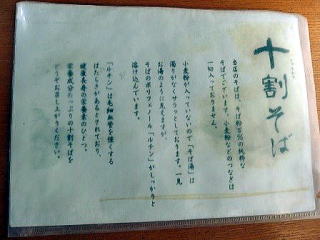 十割そば
当店のそば、そば粉百%の純粋な
そばでございます。小麦粉などのつなぎは
一切入っておりません。
小麦粉が入っていないので「そば湯」は
濁りがなくサラッとしております。一見
お湯のように見えますが、
そばのポリフェノール「ルチン」がしっかりと
溶け込んでいます。
「ルチン」は毛細血管を強くする
はたらきがあるとされており、
健康長寿の栄養素のひとつ。
栄養成分たっぷりの十割そばを
どうぞお召し上がりください。